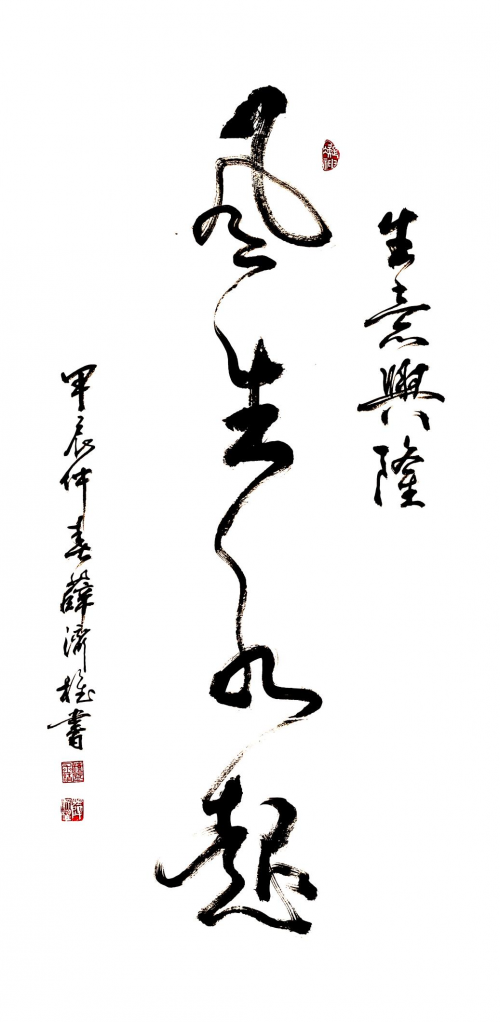 生意興隆
風生水起
甲辰仲春薛濟權書